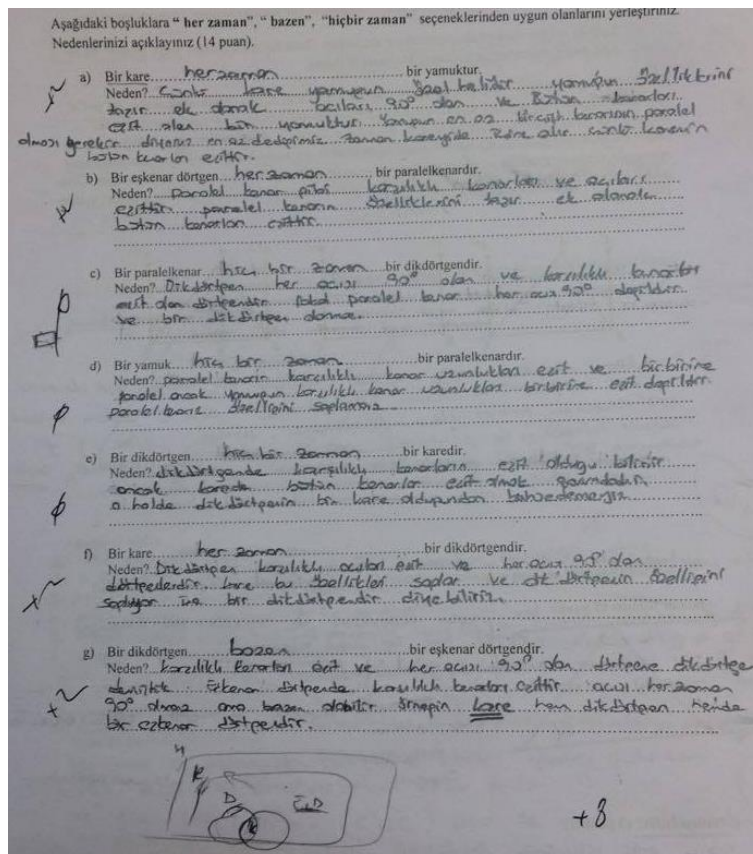 Aşağıdaki boşluklara “ her zaman”, “ bazen”, “hiçbir zaman” seçeneklerinden uygun olanlarını yerleştiriniz.
Nedenlerinizi açıklayınız (14 puan).
a) Bir kare herzaman bir yamuktur.
Neden? Çünkü kare yamuğun özel halidir yamuğun özelliklerini
taşır ek olarak açıları 90° olan ve bütün kenarları
eşit olan bir yamuktur. Yamuğun en az bir çift kenarının paralel
olması gerekir diyoruz en az dediğimiz zaman kareyide içine alır çünkü karenin
bütün kenarları eşittir.
b) Bir eşkenar dörtgen her zaman bir paralelkenardır.
Neden? Paralel kenar gibi karşılıklı kenarları ve açıları
eşittir paralel kenarın özelliklerini taşır ek olarak
bütün kenarları eşittir.
c) Bir paralelkenar hiç bir zaman bir dikdörtgendir.
Neden? Dikdörtgen her açısı 90° olan ve karşılıklı kenarları
eşit olan dörtgendir fakat paralel kenar her açısı 90° değildir
ve bir dikdörtgen olamaz
d) Bir yamuk hiç bir zaman bir paralelkenardır.
Neden? paralel kenarın karşılıklı kenar uzunlukları eşit ve birbirine
paralel ancak yamuğun karşılıklı kenar uzunlukları birbirine eşit değildir.
paralel kenar özelliğini sağlamaz
e) Bir dikdörtgen hiç bir zaman bir karedir.
Neden? dikdörtgende karşılıklı kenarların eşit olduğu bilinir
ancak karede bütün kenarlar eşit olmak zorundadır
o halde dikdörtgenin bir kare olduğundan bahsedemeyiz
f) Bir kare her zaman bir dikdörtgendir.
Neden? Dikdörtgen karşılıklı açıları eşit ve her açısı 90° olan
dörtgenlerdir kare bu özellikleri sağlar ve dikdörtgenin özelliğini
sağlıyor ise bir dikdörtgendir diyebiliriz.
g) Bir dikdörtgen bazen bir eşkenar dörtgendir.
Neden? karşılıklı kenarları eşit ve her açısı 90° olan dörtgene dikdörtgen
demiştik Eşkenar dörtgende karşılıklı kenarları eşittir açısı her zaman
90° olmaz ama bazen olabilir örneğin kare hem dikdörtgen hemde
bir eşkenar dörtgendir.
D
E.D
+8